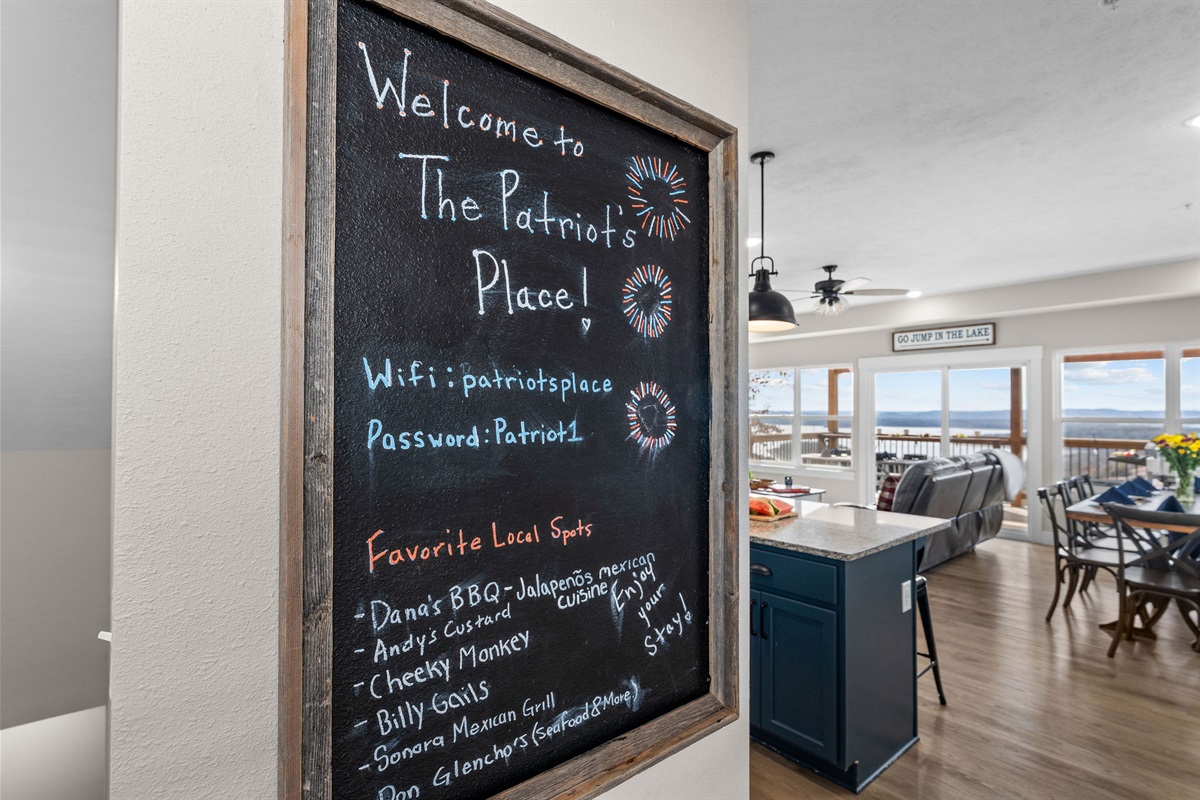 Welcome to
The Patriot's
Place!
Wifi: patriotsplace
Password: Patriot1
Favorite Local Spots
- Dana's BBQ - Jalapenõs mexican
cuisine
- Andy's Custard
- Cheeky Monkey
- Billy Gails
- Sonora Mexican Grill
- Don Glencho's (Seafood & More)
Enjoy
your
Stay!
GO JUMP IN THE LAKE